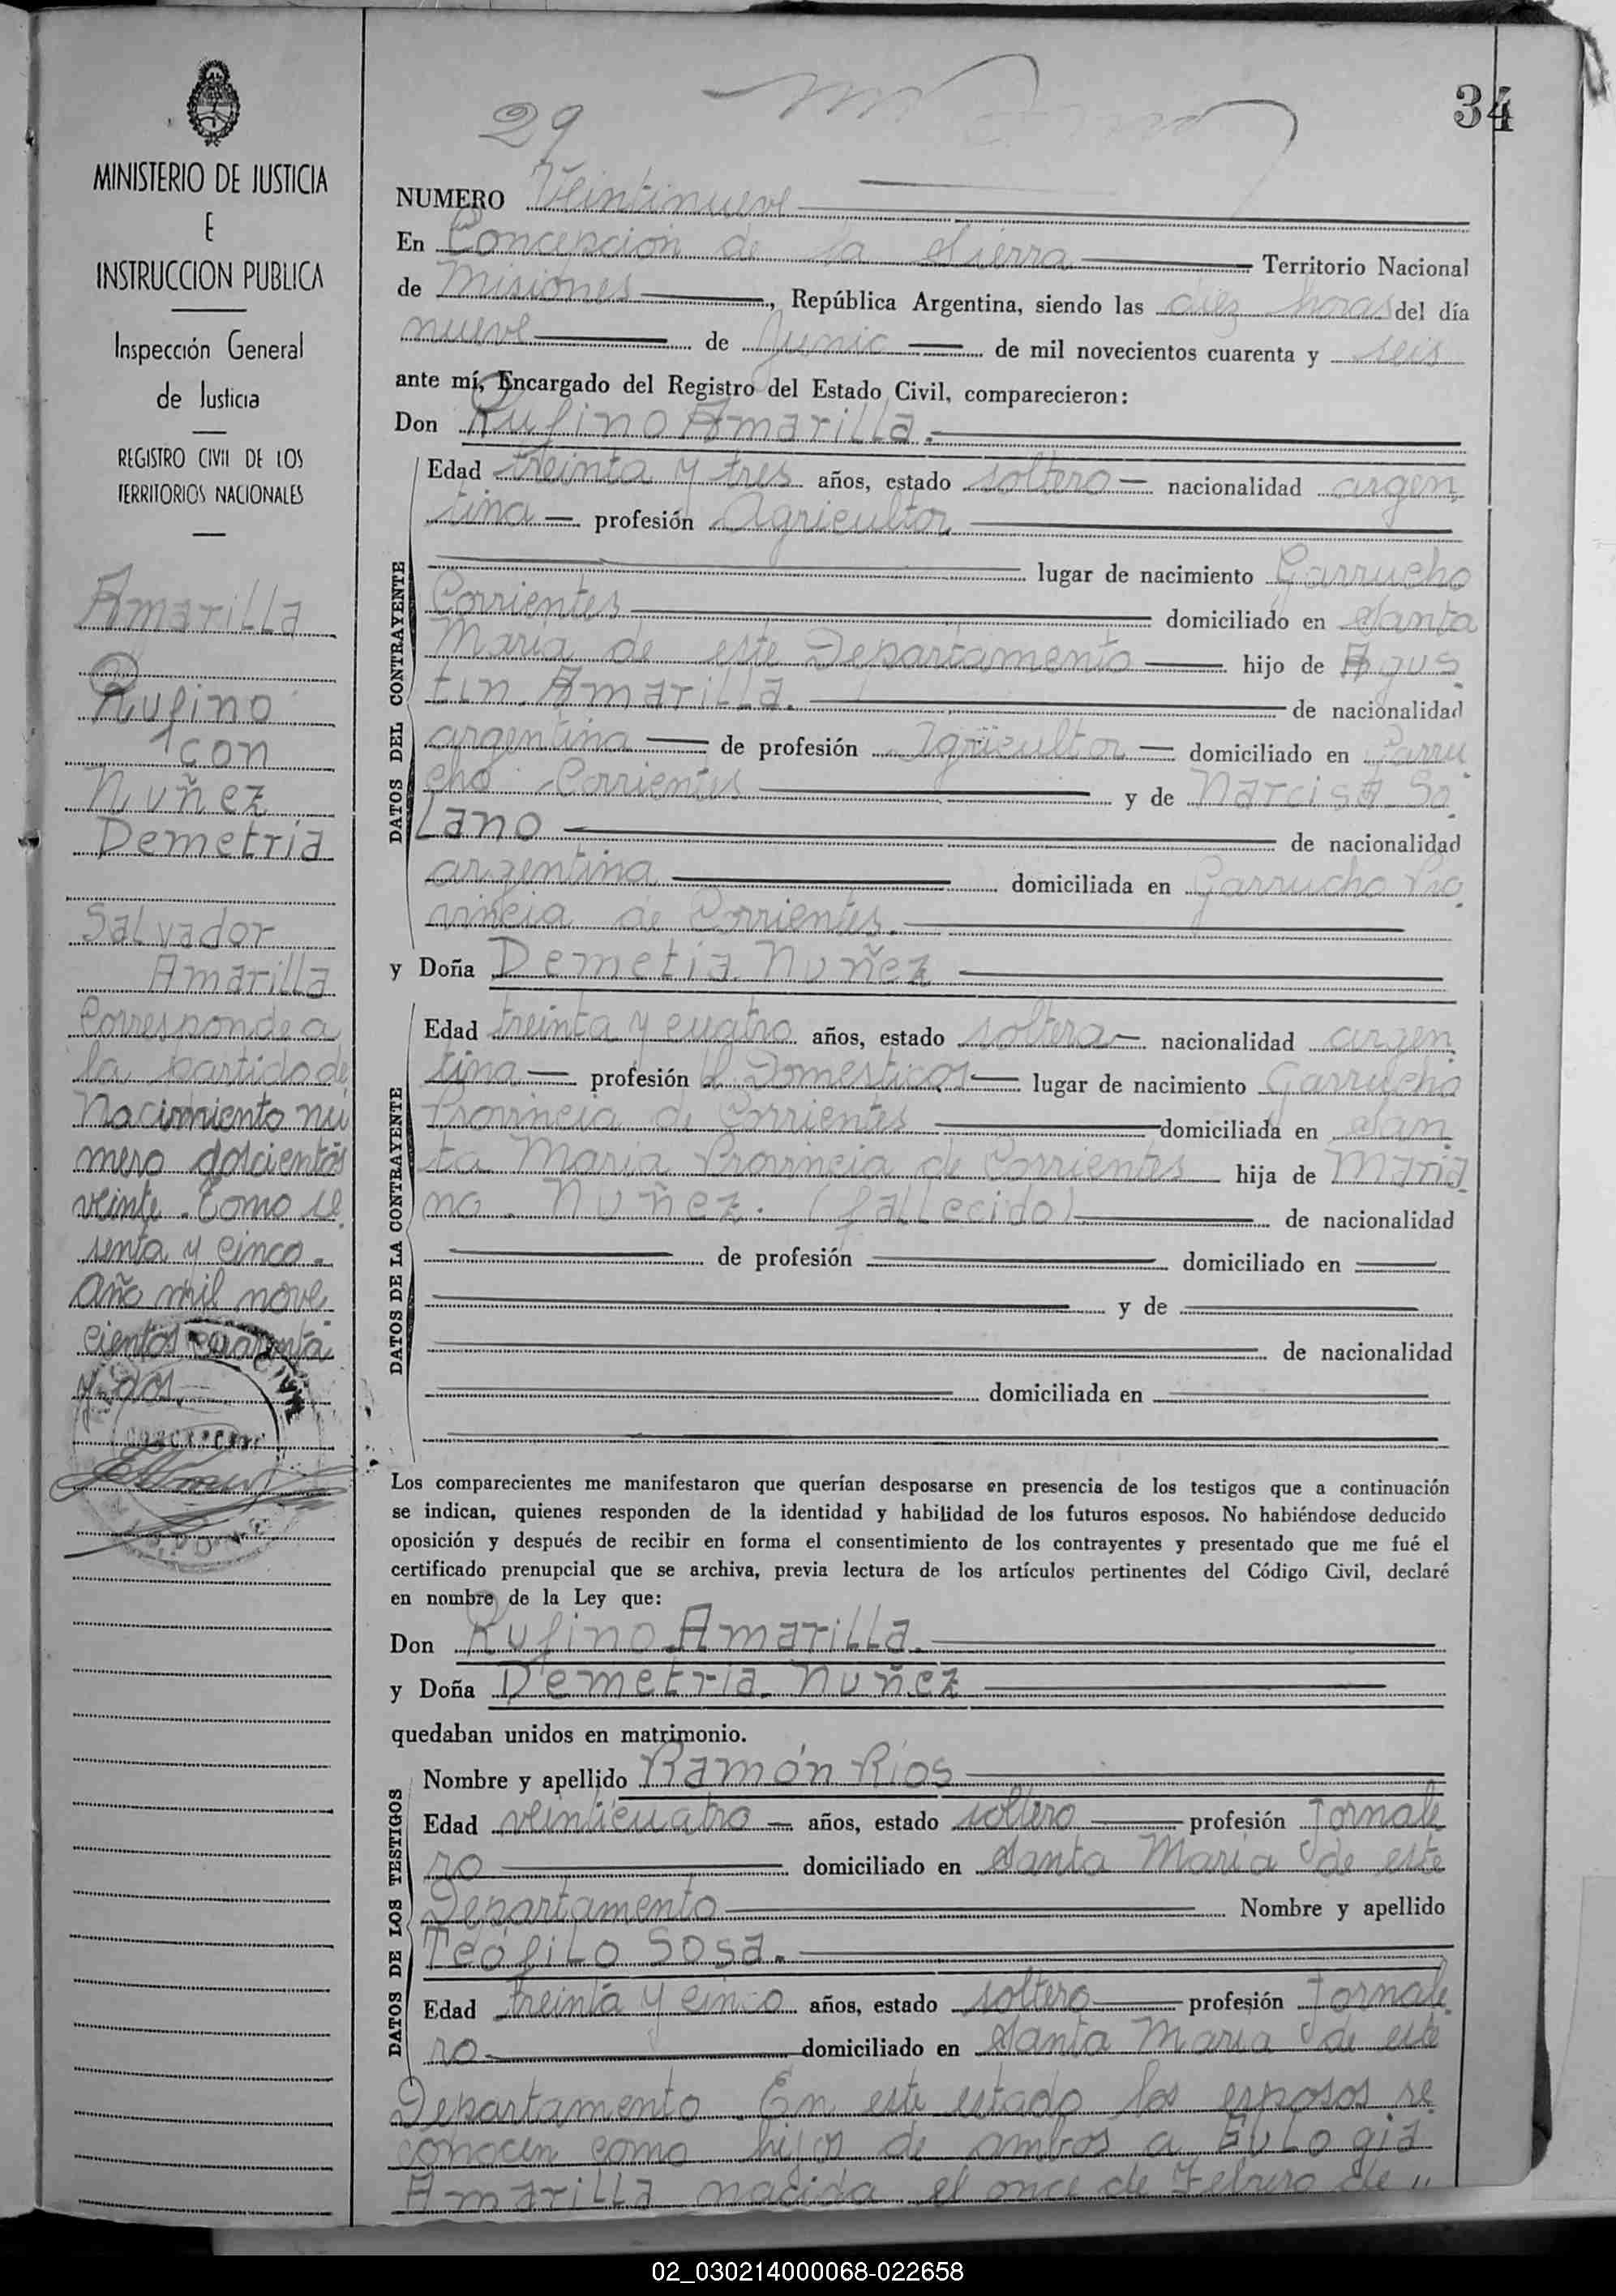 34
29
MINISTERIO DE JUSTICIA
E
INSTRUCCION PUBLICA
Inspección General
de Justicia
REGISTRO CIVIL DE LOS
TERRITORIOS NACIONALES
Amarilla
Rufino
con
Nuñez
Demetria
Salvador
Amarilla
Corresponde a
la partida de
Nacimiento nú
mero doscientos
veinte. Tomo se
senta y cinco.
Año mil nove
cientos cuarenta
y dos.
NUMERO Veintinueve
En Concepción de la Sierra Territorio Nacional
de Misiones, República Argentina, siendo las diez horas del día
nueve de Junio de mil novecientos cuarenta y seis
ante mí, Encargado del Registro del Estado Civil, comparecieron:
Don Rufino Amarilla.
DATOS DEL CONTRAYENTE
Edad treinta y tres años, estado soltero nacionalidad argen
tina profesión Agricultor
lugar de nacimiento Garrucho
Corrientes domiciliado en Santa
María de este Departamento hijo de Agus
tin Amarilla. de nacionalidad
argentina de profesión Agricultor domiciliado en Garru
cho Corrientes y de Narcisa So
Lano de nacionalidad
argentina domiciliada en Garrucho Pro
vincia de Corrientes.
y Doña Demetia Nuñez
DATOS DE LA CONTRAYENTE
Edad treinta y cuatro años, estado soltera nacionalidad argen
tina profesión Q. Domesticos lugar de nacimiento Garrucho
Provincia de Corrientes domiciliada en San
ta María Provincia de Corrientes hija de Maria
no Nuñez. (fallecido) de nacionalidad
de profesión domiciliado en
y de
de nacionalidad
domiciliada en
Los comparecientes me manifestaron que querían desposarse en presencia de los testigos que a continuación
se indican, quienes responden de la identidad y habilidad de los futuros esposos. No habiéndose deducido
oposición y después de recibir en forma el consentimiento de los contrayentes y presentado que me fué el
certificado prenupcial que se archiva, previa lectura de los artículos pertinentes del Código Civil, declaré
en nombre de la Ley que:
Don Rufino Amarilla.
y Doña Demetria Nuñez
quedaban unidos en matrimonio.
DATOS DE LOS TESTIGOS
Nombre y apellido Ramón Ríos
Edad veinticuatro años, estado soltero profesión Jornale
ro domiciliado en Santa María de este
Departamento Nombre y apellido
Teófilo Sosa.
Edad treinta y cinco años, estado soltero profesión Jornale
ro domiciliado en Santa María de este
Departamento. En este estado los esposos re
conocen como hijos de ambos a Eulogia
Amarilla nacida el once de Febrero de "
02_030214000068-022658